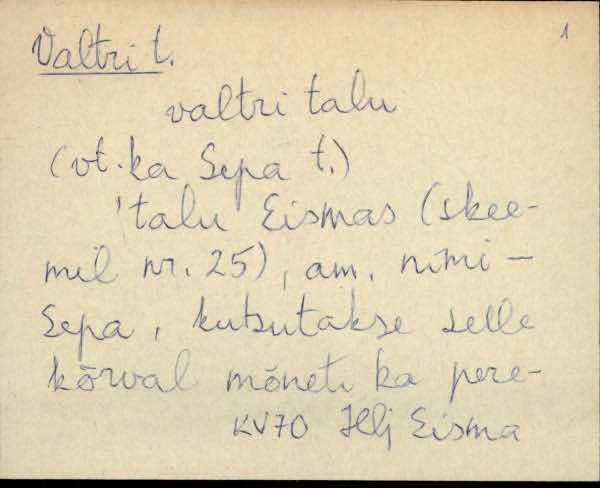 Valtri t. 1
valtri talu
(vt. ka Sepa t.)
'talu' Eismas (skee-
mil nr. 25), am. nimi -
Sepa, kutsutakse selle
kõrval mõneti ka pere-
KV70 Hlj Eisma